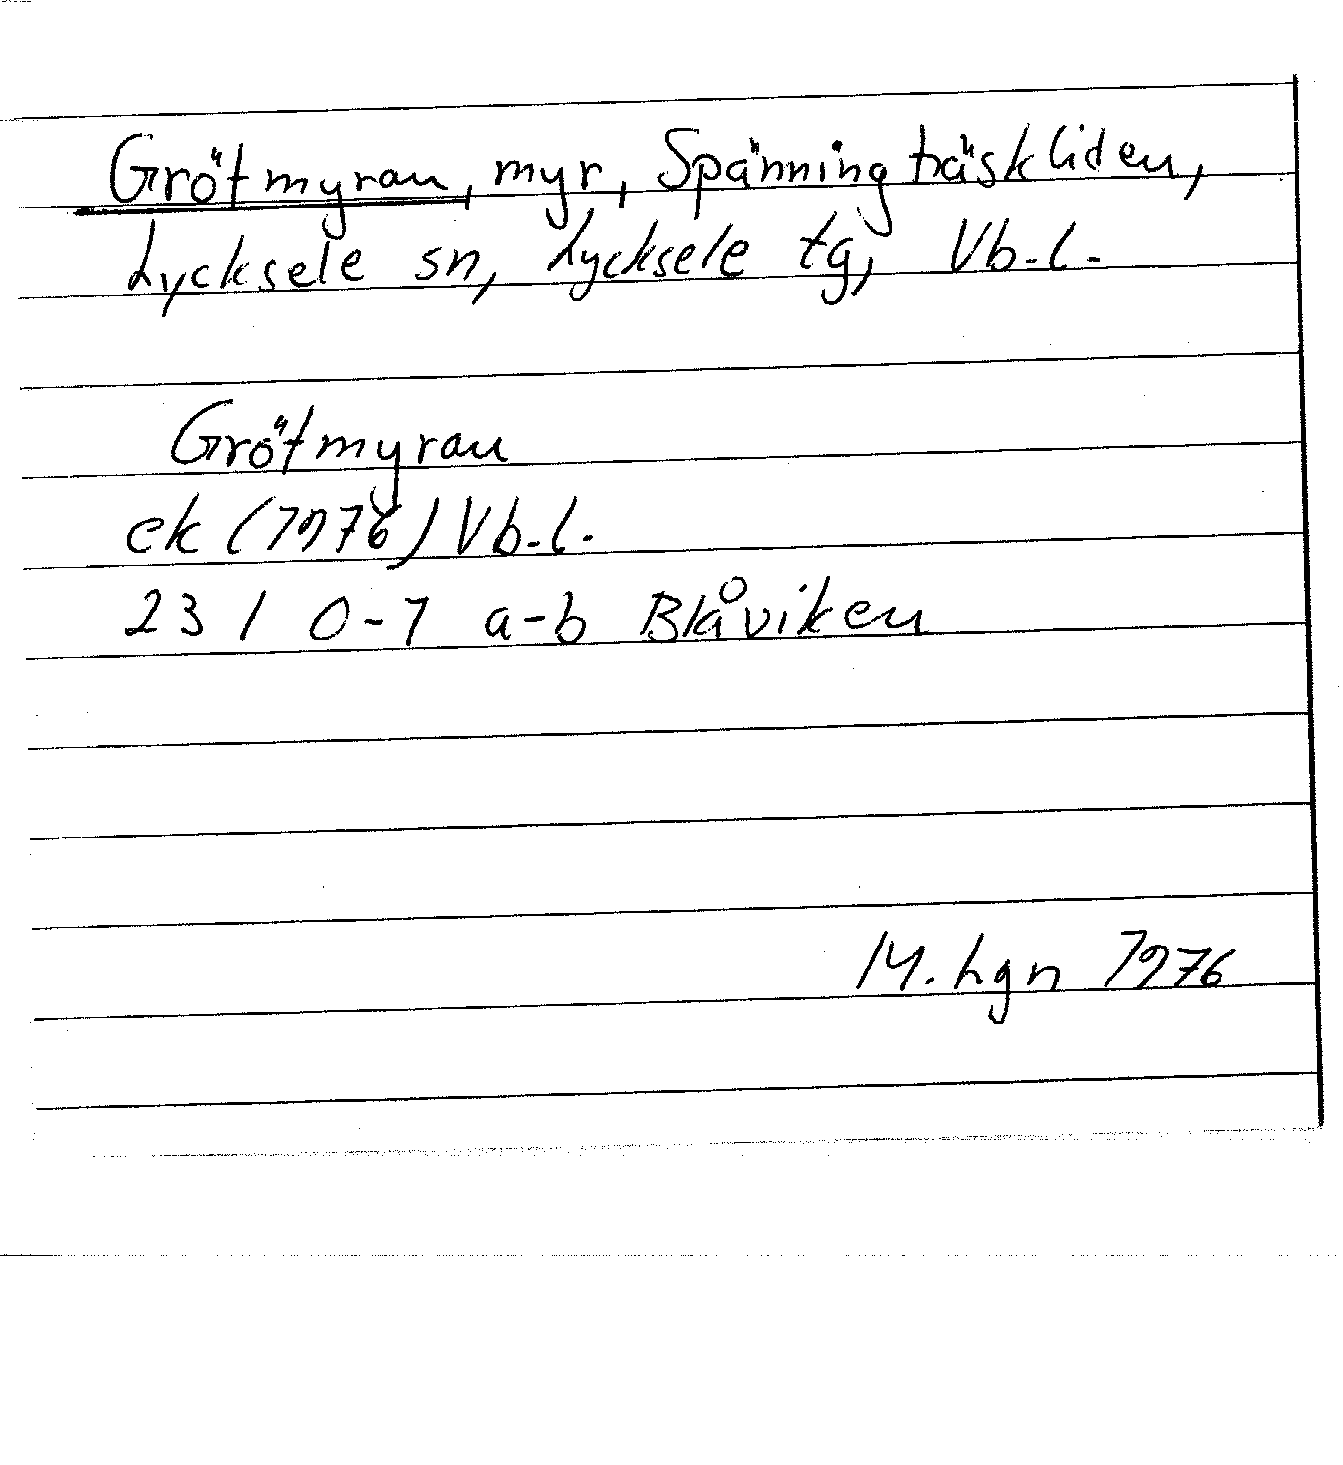 Grötmyran, myr, Spänningträskliden,
Lycksele sn, Lycksele tg, Vb.l.
Grötmyran
ek (1976) Vb.l.
23 I 0-1 a-b Blåviken
M. hgn 1976